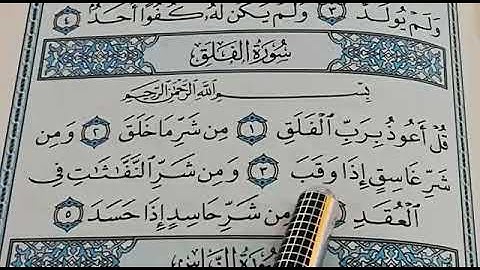 وَلَمْ يُولَدْ ٣ وَلَمْ يَكُن لَّهُۥ كُفُوًا أَحَدٌۢ ٤
سُورَةُ الفَلَقِ
بِسْمِ ٱللَّهِ ٱلرَّحْمَٰنِ ٱلرَّحِيمِ
قُلْ أَعُوذُ بِرَبِّ ٱلْفَلَقِ ١ مِن شَرِّ مَا خَلَقَ ٢ وَمِن
شَرِّ غَاسِقٍ إِذَا وَقَبَ ٣ وَمِن شَرِّ ٱلنَّفَّٰثَٰتِ فِى
ٱلْعُقَدِ مِن شَرِّ حَاسِدٍ إِذَا حَسَدَ ٥
سُورَةُ النَّاسِ